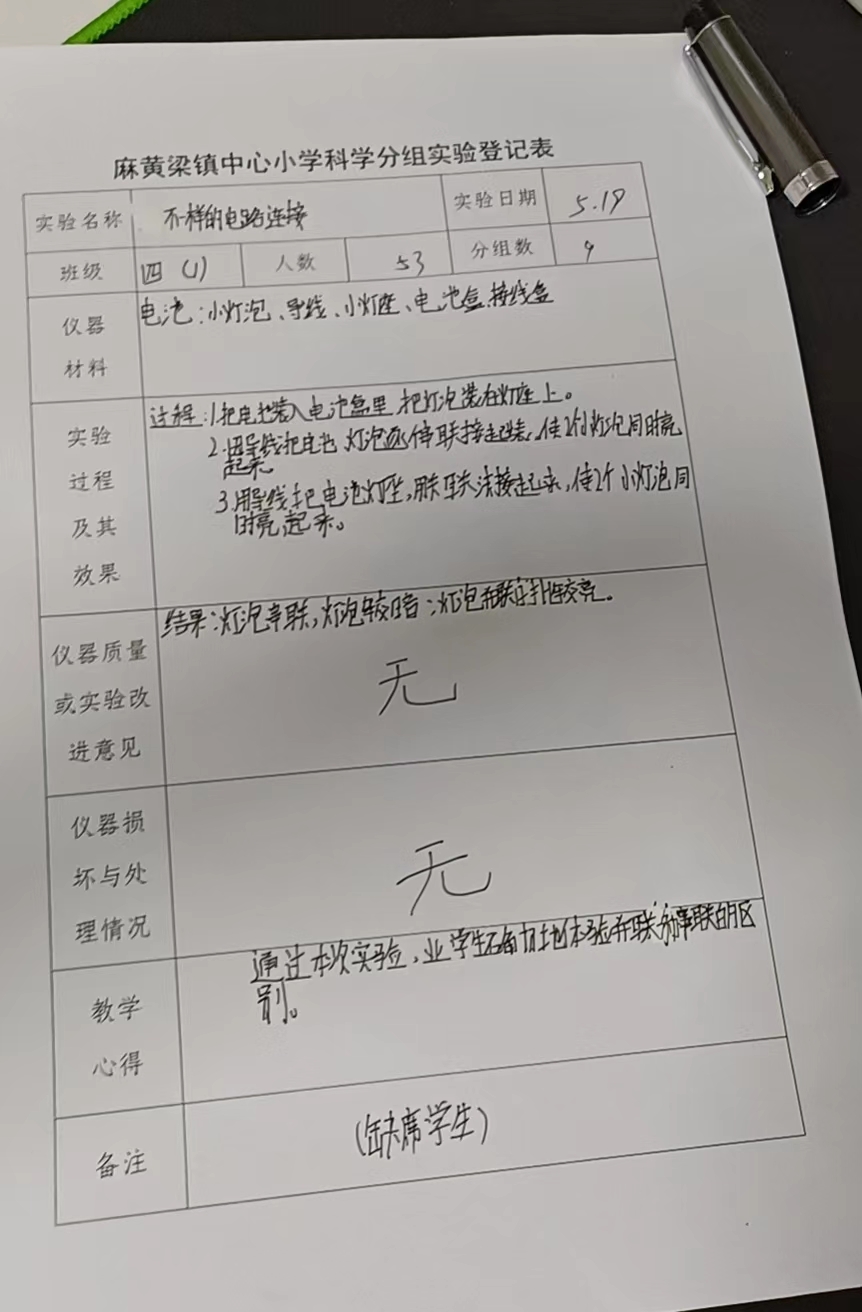 麻黄梁镇中心小学科学分组实验登记表
实验名称 不样的电路连接 实验日期 5.19
班级 四（1） 人数 53 分组数 9
仪器材料
电池：小灯泡、导线、小灯座、电池盒、接线盒
实验过程及其效果
过程：1.把电池装入电池盒里，把灯泡装在灯座上。
2.用导线把电池 灯泡 串联接起来，使2个小灯泡同时亮
起来。
3.用导线把电池灯座，用 联法接起来，使2个小灯泡同
时亮起来。
结果：灯泡串联，灯泡较暗；灯泡并联 较亮。
仪器质量或实验改进意见
无
仪器损坏与处理情况
无
教学心得
通过本次实验， 学生 地体验并联 串联的区
别。
备注
（缺席学生）